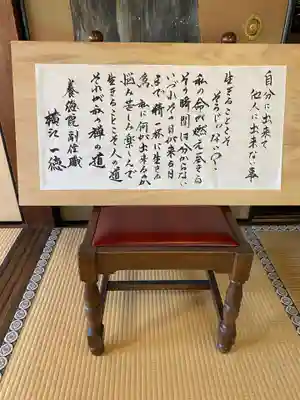 自分に出来て
他人に出来ない事
生きることこそ
そうじゃないか?
私の命が燃え尽きる
その時間は分からない
いづれその日が来る日
まで精一杯に生きる
私に何が出来るのか
悩み苦しみ楽しんで
生きることこそ人の道
それが私の禅の道
養徳院 副住職
横江 一徳